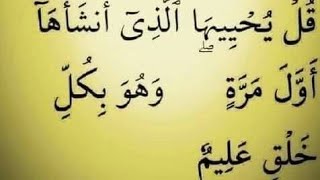 قُلْ يُحْيِيهَا ٱلَّذِىٓ أَنشَأَهَآ
أَوَّلَ مَرَّةٍ ۖ وَهُوَ بِكُلِّ
خَلْقٍ عَلِيمٌ